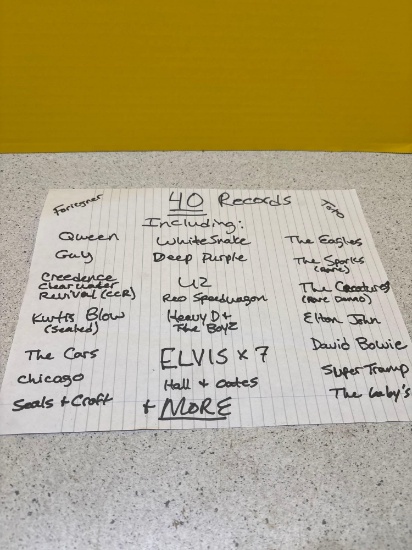 Foriegner
40 Records
Toto
Including:
Queen
Guy
Creedence
Clearwater
Revival (CCR)
Kurtis Blow
(Sealed)
The Cars
Chicago
Seals + Croft
Whitesnake
Deep Purple
U2
Reo Speedwagon
Heavy D +
The Boyz
ELVIS x 7
Hall + Oates
+ MORE
The Eagles
The
(Rare)
The Creatures
(Rare Demo)
Elton John
David Bowie
Super Tramp
The Baby's